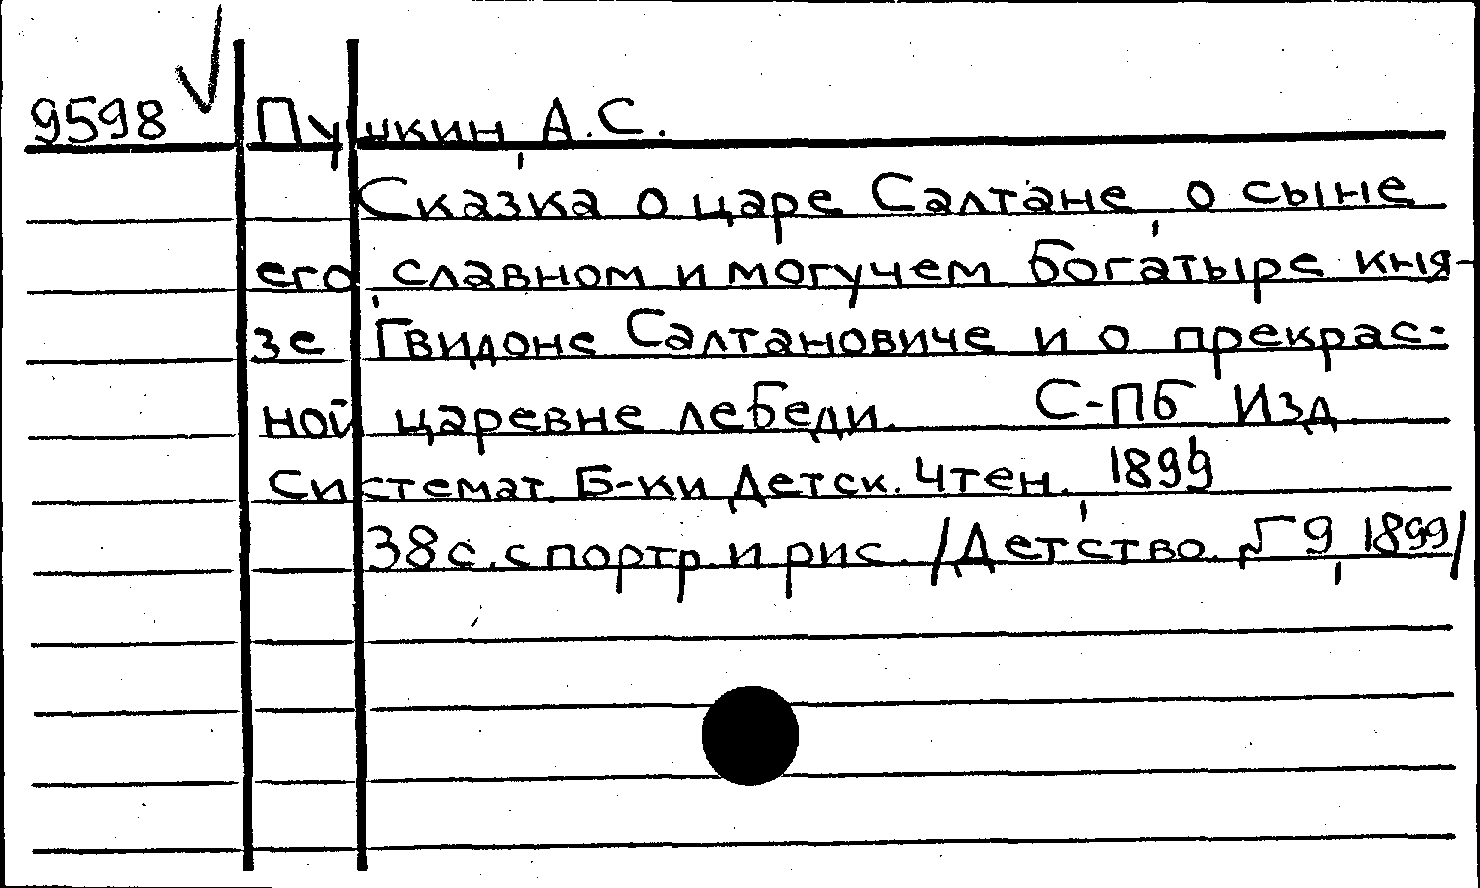 9598 Пушкин, А.С.
Сказка о царе Салтане, о сыне
его, славном и могучем богатыре кня-
зе Гвидоне Салтановиче и о прекрас-
ной царевне лебеди. С-ПБ Изд
Системат. Б-ки Детск. Чтен., 1899
38с. с портр. и рис. /Детство. № 9, 1899/